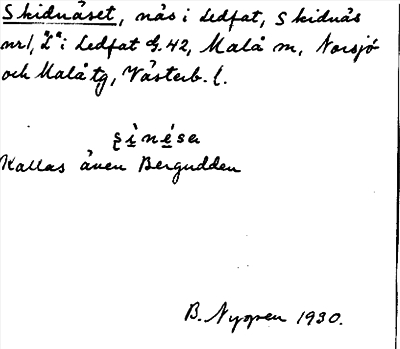 Skidnäset, näs i Ledfat, Skidnäs
nr 1, "L" i Ledfat å. 42, Malå sn, Norsjö
och Malå tg, Västerb. l.
şi̱ne̱sa
Kallas även Bergudden
B. Nygren 1930.